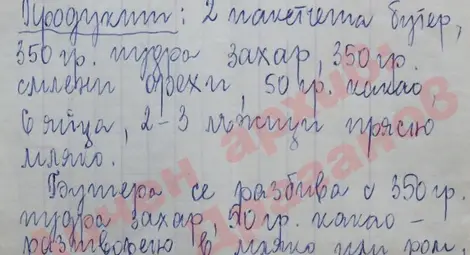 Продукти: 2 пакетчета бутер,
350 гр. пудра захар, 350 гр.
смлени орехи, 50 гр. какао
6 яйца, 2-3 лъжици прясно
мляко.
Бутера се разбива с 350 гр.
пудра захар, 50 гр. какао -
разтворено в мляко или ром,
личен архив:
Драганов